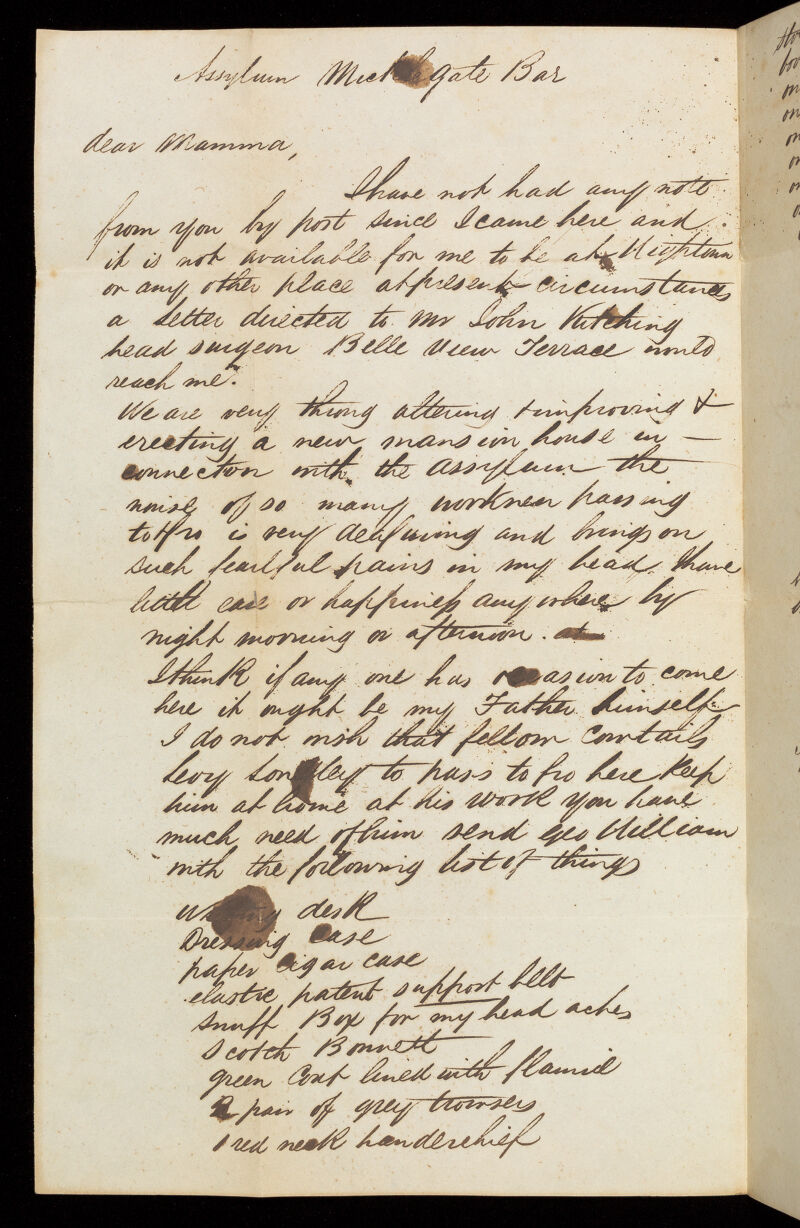 Assylum Micklegate Bar
dear Mamma,
I have not had any note
from you by post since I came here and
it is not available for me to be at Heightown
or any other place at present circumstances
a letter directed to Mr John Kitching
head surgeon Belle View Terrace would
reach me.
We are very throng altering & improving &
erecting a new mansion house in —
connection with the Assylum the
noise of so many workmen passing
to & fro is very deafening and brings on
such fearful pains in my head I have
little ease or happiness any where by
night morning or afternoon. at
I think if any one has occasion to come
here it ought be my Father himself
I do not wish that fellow Cowtails
Levy to pass to fro here keep
him at home at his work you have
much need of him send Geo William
with the following list of things
Writing desk
Dressing Case
paper Cigar case
elastic patent support belt
Snuff Box for my head aches
Scotch Bonnett
green Coat lined with flannil
2 pair of grey trowsers
1 red neck handerchief